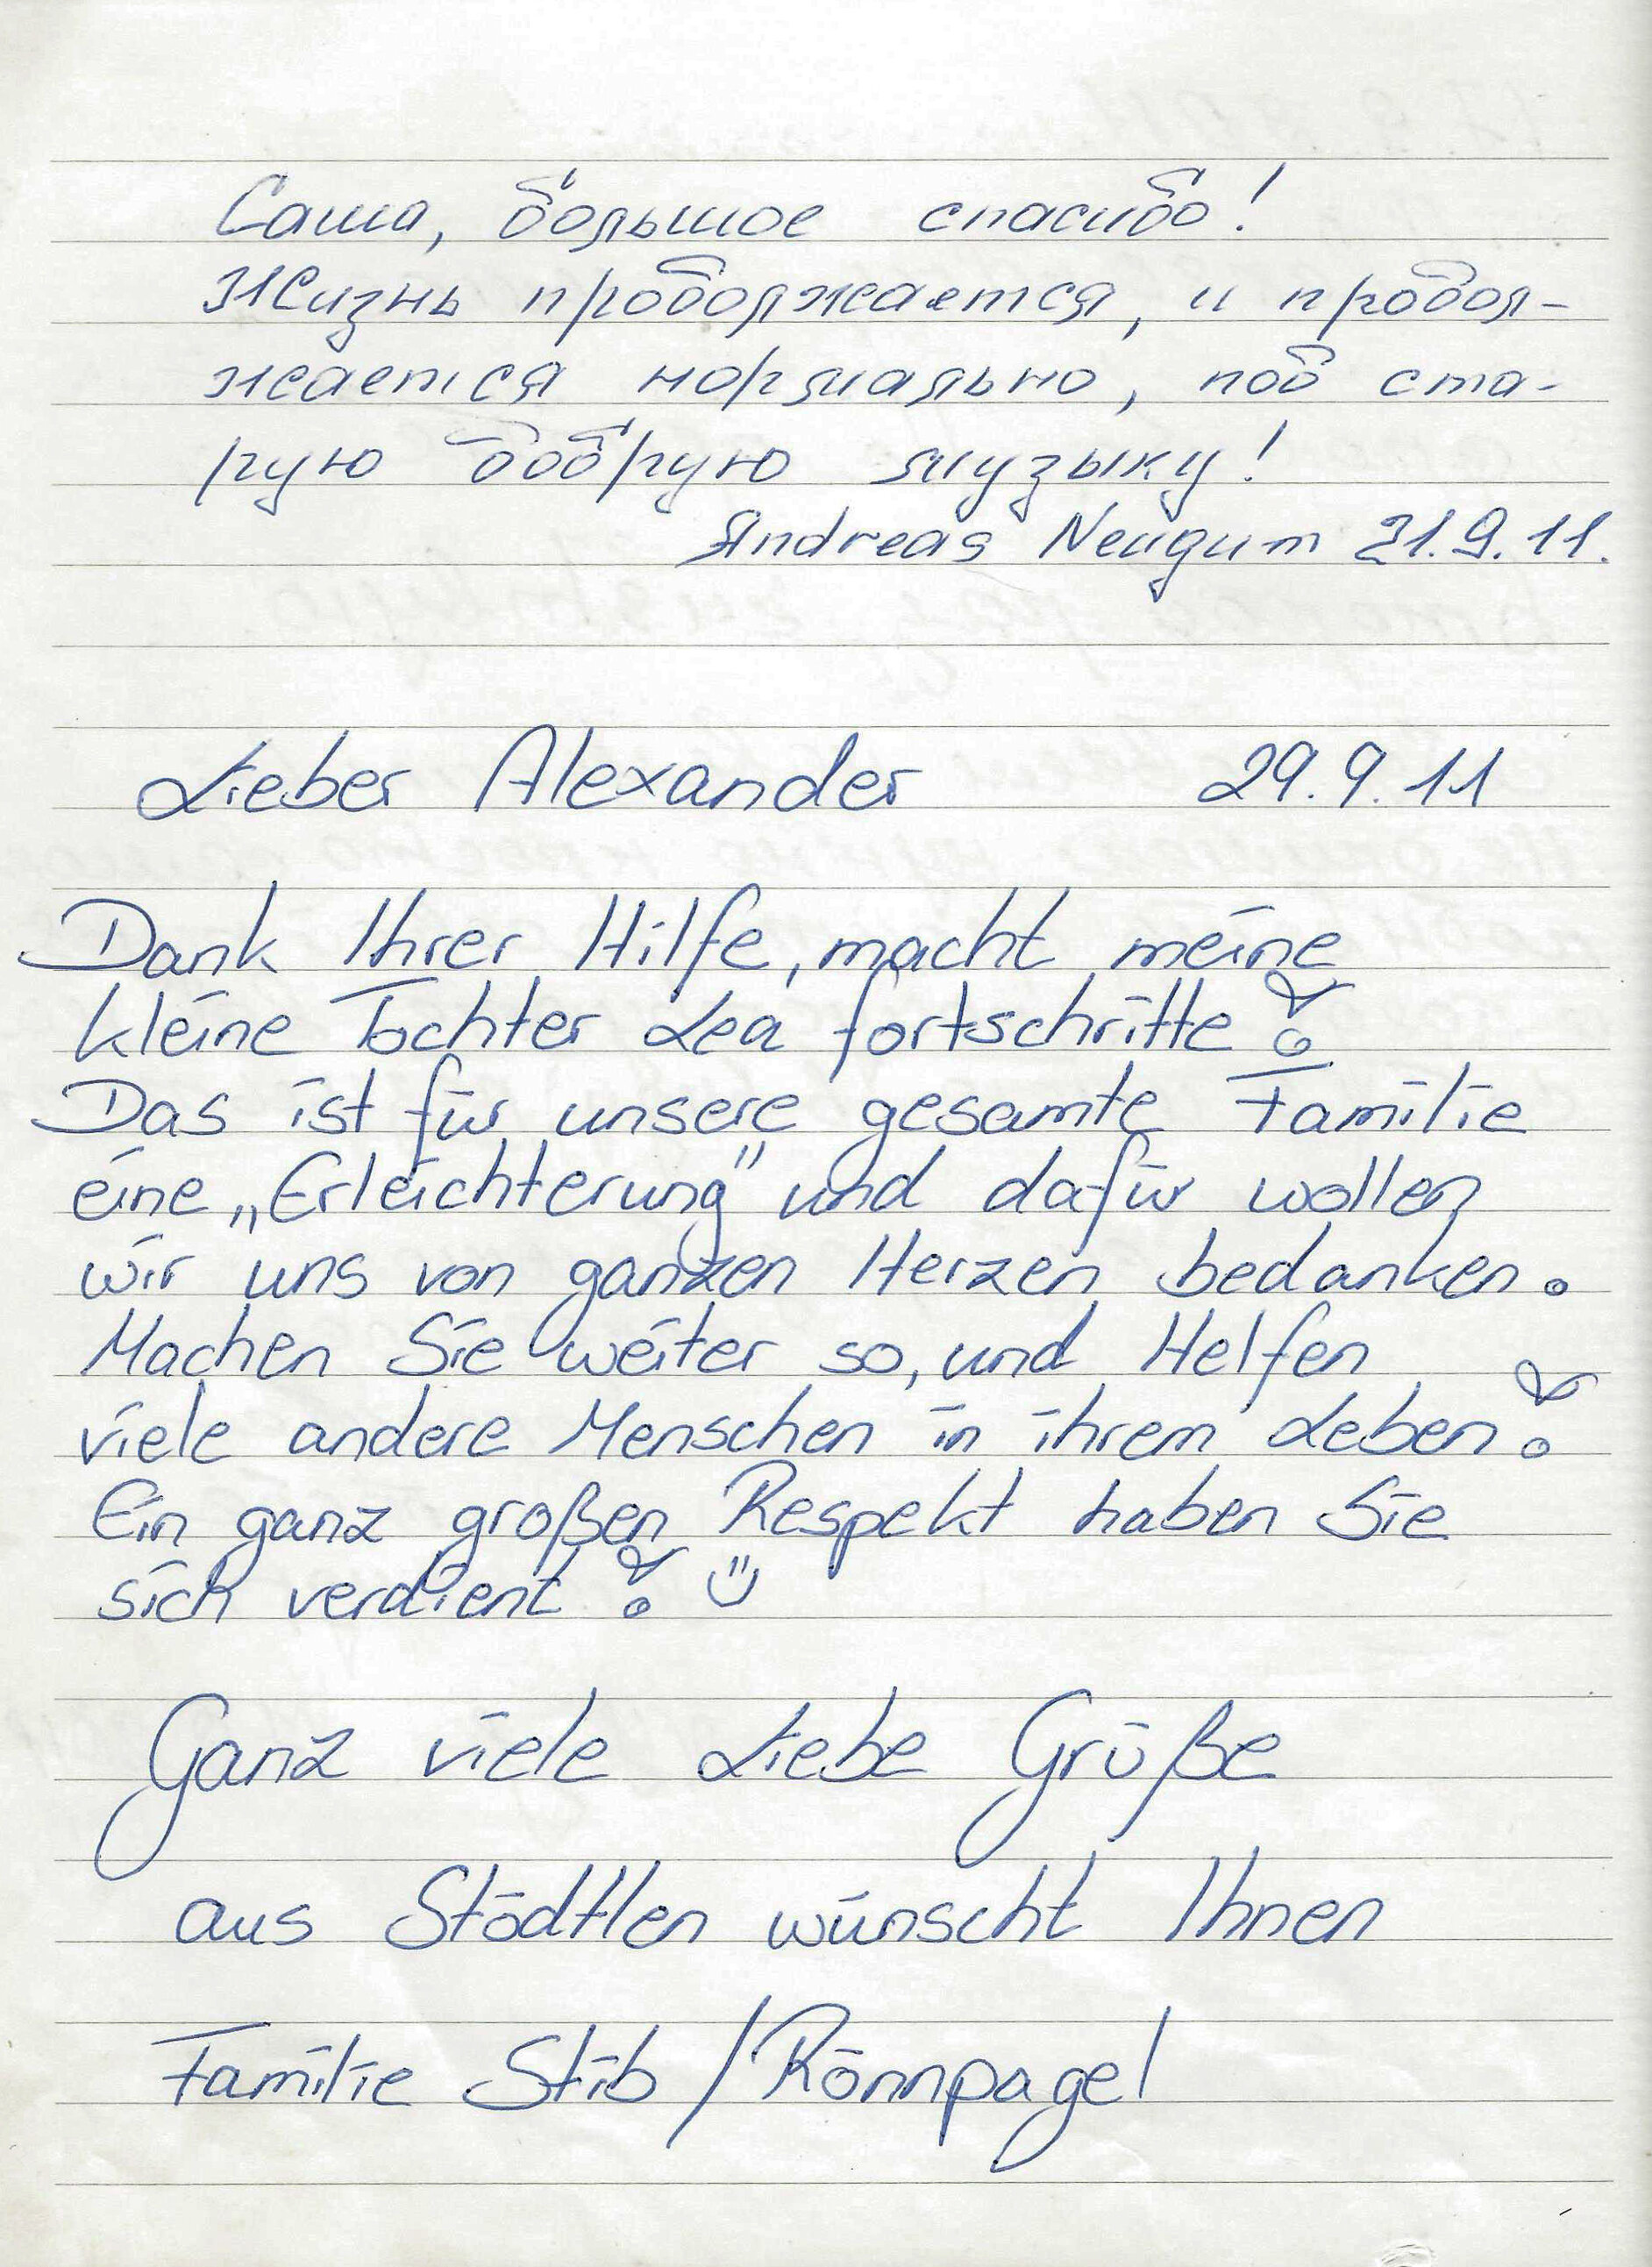 Саша, большое спасибо!
Жизнь продолжается, и продол-
жается нормально, под ста-
рую добрую музыку!
Andreas Neugum 21.9.11.
Lieber Alexander 29.9.11
Dank Ihrer Hilfe, macht meine
kleine Tochter Lea fortschritte!
Das ist für unsere gesamte Familie
eine „Erleichterung" und dafür wollen
wir uns von ganzen Herzen bedanken.
Machen Sie weiter so, und Helfen
viele andere Menschen in ihrem Leben!
Ein ganz großen Respekt haben Sie
sich verdient! ü
Ganz viele Liebe Grüße
aus Stödtlen wünscht Ihnen
Familie Stib / Rönnpagel